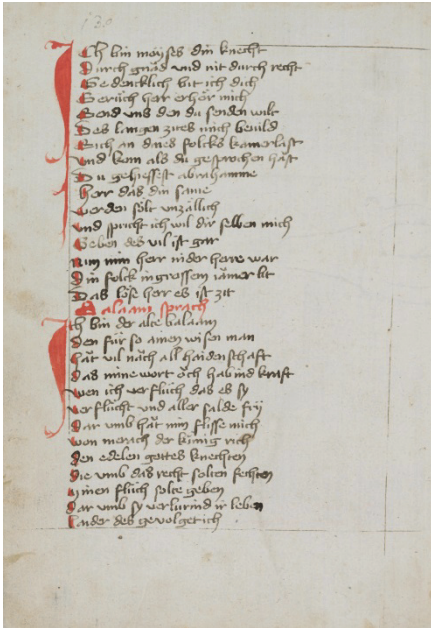 130
Ich bin moyses din knecht
Durch gnad vnd nit durch recht
Gedencklich bit ich dich
Geruch herr erhör mich
Send vns den du senden wilt
Des langen zites mich beuild
Sich an dines folcks kamerlast
Vnd kum als du gesprochen hast
Du gehiessest abrahamme
herr das din same
werden sölt unzallich
vnd spricht ich wil dir selben mich
Geben des vil ist gar
Nim min herr nider here war
Din folck in grossem iamer lit
Das löse herr es ist zit
Balaam sprach
Ich bin der alte balaam
den für so ainen wisen man
hat vil nach all haidenschaft
das mine wort öch habind kraft
wen ich verfluch das es sy
verflucht vnd aller salde frij
Dar vmb hat min flisse mich
von morach der künig rich
den edelen gottes knechten
die vmb das recht solten fechten
minen fluch solte geben
dar vmb sy verlurind ir leben
Laider des gevolget ich